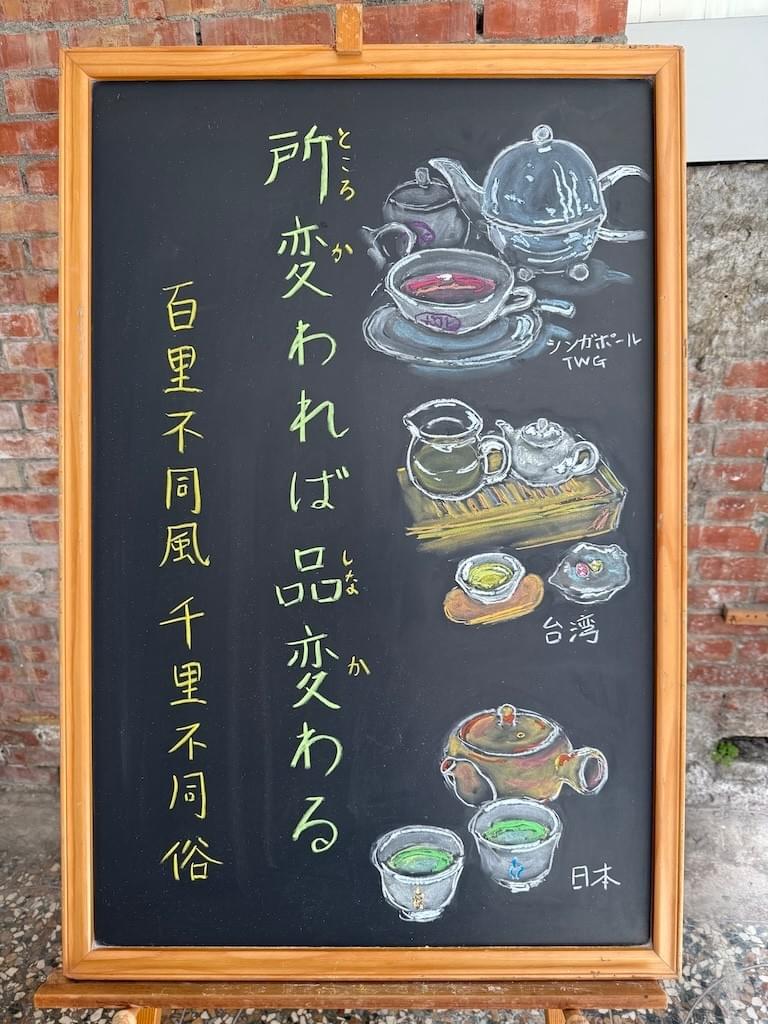 所変われば品変わる
ところ
か
しな
か
百里不同風 千里不同俗
シンガポール
TWG
台湾
日本